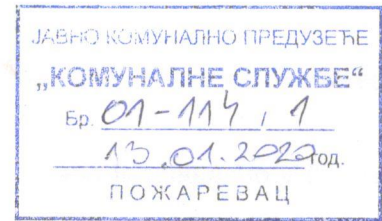 ЈАВНО КОМУНАЛНО ПРЕДУЗЕЋЕ
„КОМУНАЛНЕ СЛУЖБЕ“
Бр. 01-114 / 1
13.01.2020 год.
ПОЖАРЕВАЦ